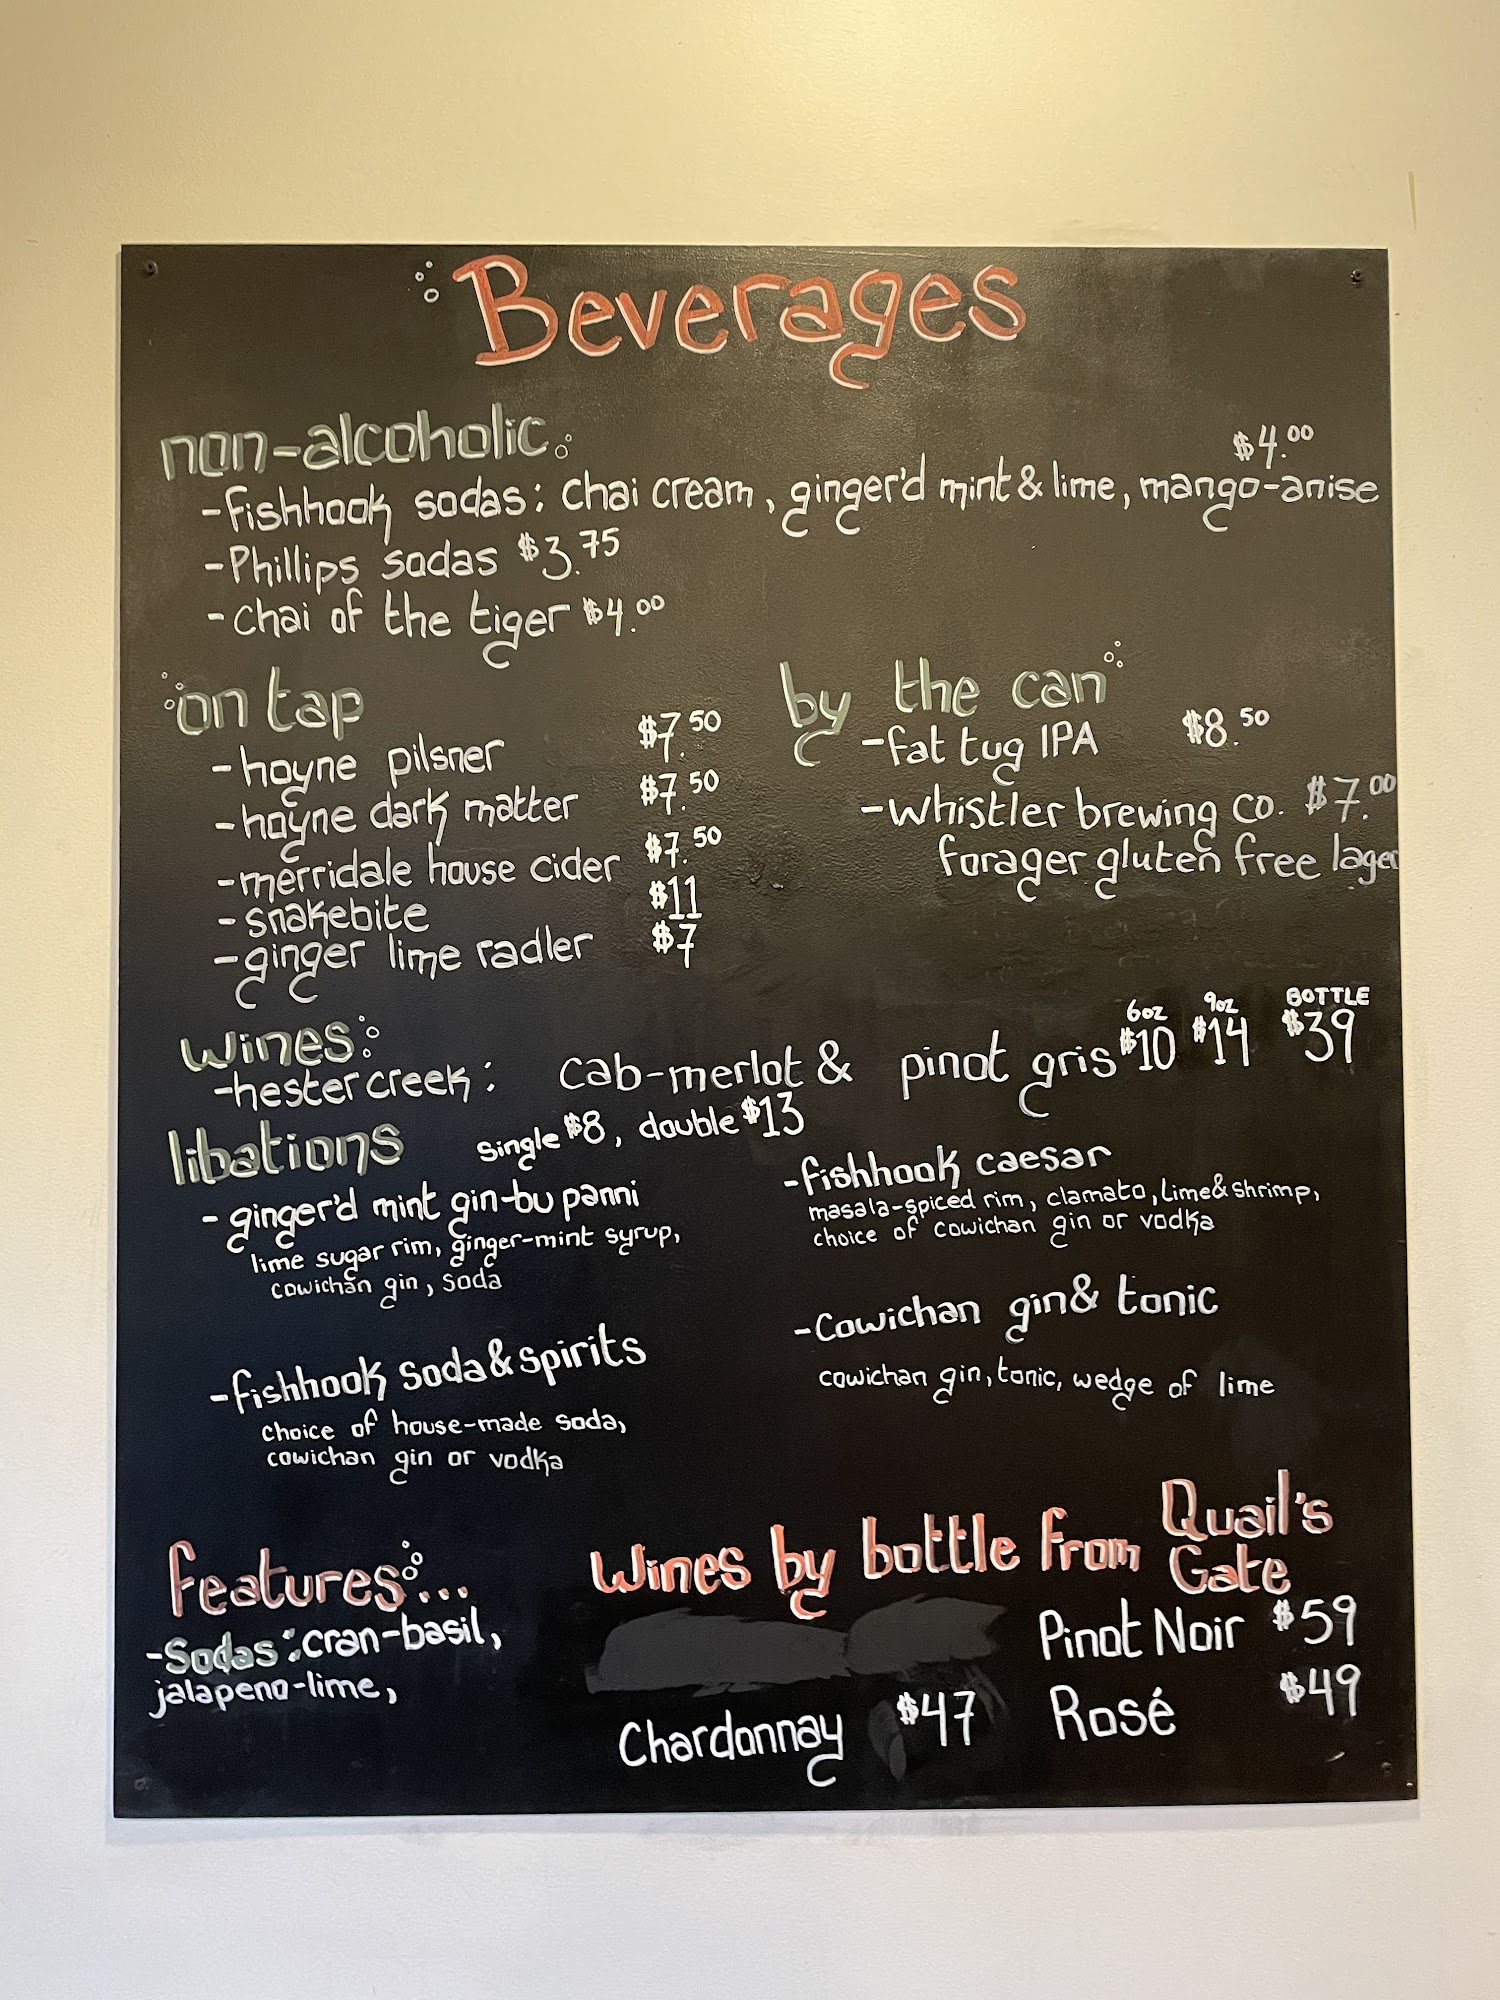 Beverages
non-alcoholic
$4.00
-fishhook sodas: chai cream, ginger'd mint & lime, mango-anise
-Phillips sodas $3.75
-chai of the tiger $4.00
on tap
-hoyne pilsner $7.50
-hoyne dark matter $7.50
-merridale house cider $7.50
-snakebite $11
-ginger lime radler $7
by the can
-fat tug IPA $8.50
-whistler brewing co. $7.00
forager gluten free lager
wines:
6oz 9oz BOTTLE
-hester creek: cab-merlot & pinot gris $10 $14 $39
libations single $8, double $13
-ginger'd mint gin-bu panni
lime sugar rim, ginger-mint syrup,
cowichan gin, soda
-fishhook soda & spirits
choice of house-made soda,
cowichan gin or vodka
-fishhook caesar
masala-spiced rim, clamato, lime & shrimp,
choice of cowichan gin or vodka
-Cowichan gin & tonic
cowichan gin, tonic, wedge of lime
features...
-Sodas: cran-basil,
jalapeno-lime,
Wines by bottle from Quail's
Gate
Pinot Noir $59
Chardonnay $47
Rosé $49